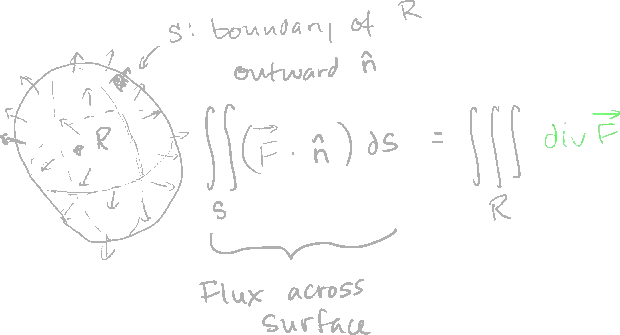 S: boundary of R
outward n̂
R
∬ (F⃗ · n̂) dS = ∭ div F⃗
S R
Flux across
surface